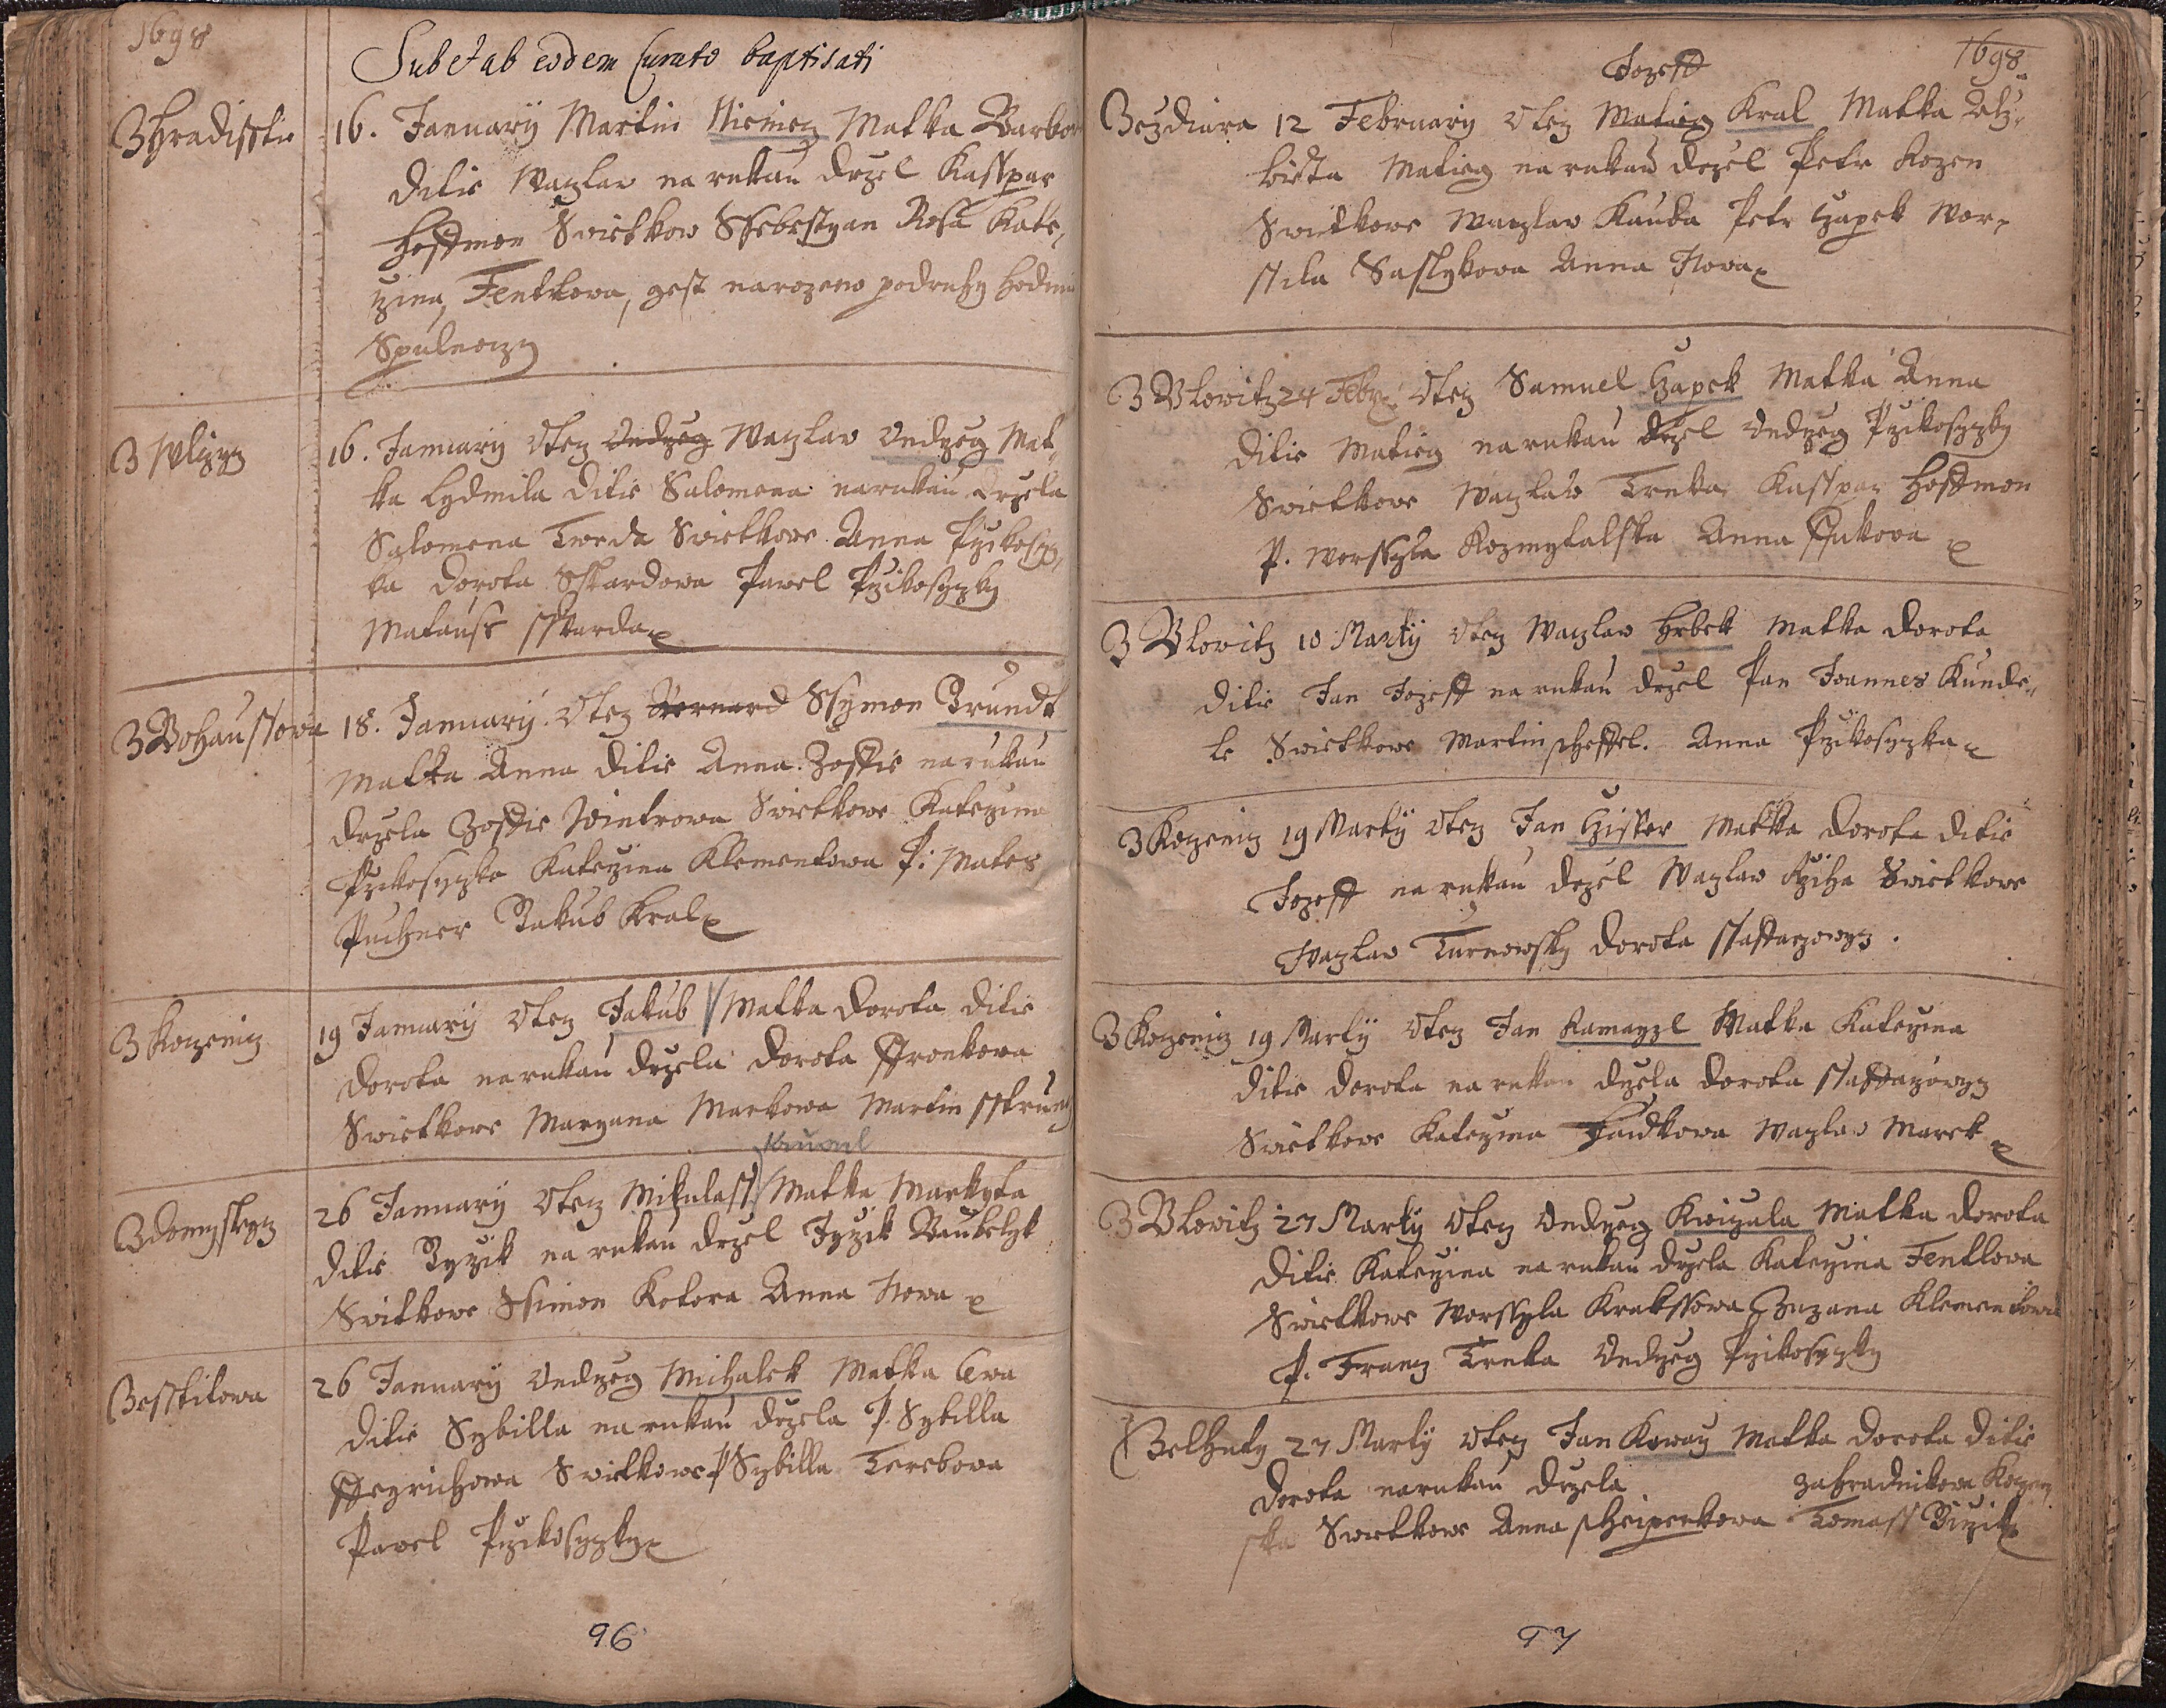 1698
Sub et ab eodem Curato baptisati
Z Hradisstie 16. January Martin Niemecz Matka Barbora
Ditie Waczlaw na rukau drzel Kasspar
Hoffmon Swietkow Ssebestyan Rosa Kate-
rzina Fentkowa, gest narozeno podruhy hodinie
Spulnoczy
Z Wlczy 16. January Otecz Ondrzeg Waczlaw Ondrzeg Mat-
ka Lydmila Ditie Salomena na rukau drzela
Salomena Tworda Swietkowe Anna Przikosyz-
ka Dorota Sskardowa Pawel Przikosyzky
Matauss sskarda
Z Bohaussowa 18. January Otecz Bernard Ssymon Brundt
Matka Anna Ditie Anna Zoffie na rukau
drzela Zoffie Wintrowa Swietkowe Katerzina
Przikosyzka Katerzina Klementowa P. Mates
Puchner Jakub Kral
Z Korzenicz 19 January Otecz Jakub Matka Dorota Ditie
Dorota na rukau drzela Dorota Fronkowa
Swietkowe Maryana Markowa Martin
26 January Otecz Mikulass Matka Markyta
Ditie Jyrzik na rukau drzel Jyrzik
Switkowe Ssimon Kotora Anna Nowa
Z esstikowa 26 January Ondrzeg Michalek Matka Ewa
Ditie Sybilla na rukau drzela P. Sybilla
Swietkowe P Sybilla Terebowa
Pawel Przikosyzky
96
1698
Jozeff
Bezdiara 12 February Otecz Matieg Kral Matka Alz-
bieta Matieg na rukau drzel Petr Kozen
Swietkowe Waczlaw Kauba Petr Czapek Wor-
ssila Saslykowa Anna Nowa
Z Ulowitz 24 Febr. Otecz Samuel Czapek Matka Anna
Ditie Matieg na rukau drzel Ondrzeg Przikosyzky
Swietkowe Waczlaw Trnka Kasspar Hoffmon
P. Worssyla Rozmytalska Anna
Z Ulowitz 10 Marty Otecz Waczlaw Hrbek Matka Dorota
Ditie Jan Jozeff na rukau drzel Pan Joannes Kunde-
le Swietkowe Martin scheffel. Anna Przikosyzka
Z Korzenicz 19 Marty Otecz Jan Czisser Matka Dorota Ditie
Jozeff na rukau drzel Waczlaw Rziha Swietkowe
Waczlaw Turnowsky Dorota ssaffarzowy.
Z Korzenicz 19 Marty Otecz Jan Kamayzl Matka Katerzina
Ditie Dorota na rukau drzela Dorota ssaffarzowy
Swietkowe Katerzina Waczlaw Marek
Z Ulowitz 27 Marty Otecz Ondrzeg Kwiczala Matka Dorota
Ditie Katerzina na rukau drzela Katerzina Fentlowa
Swietkowe Worssyla Krakssowa Zuzana Klementowa
P. Francz Trnka Ondrzeg Przikosyzky
Z Lhuty 27 Marty Otecz Jan Kowarz Matka Dorota Ditie
Dorota na rukau drzela zahradnikowa Korzen-
ska Swietkowe Anna Tomass Jirzik
97